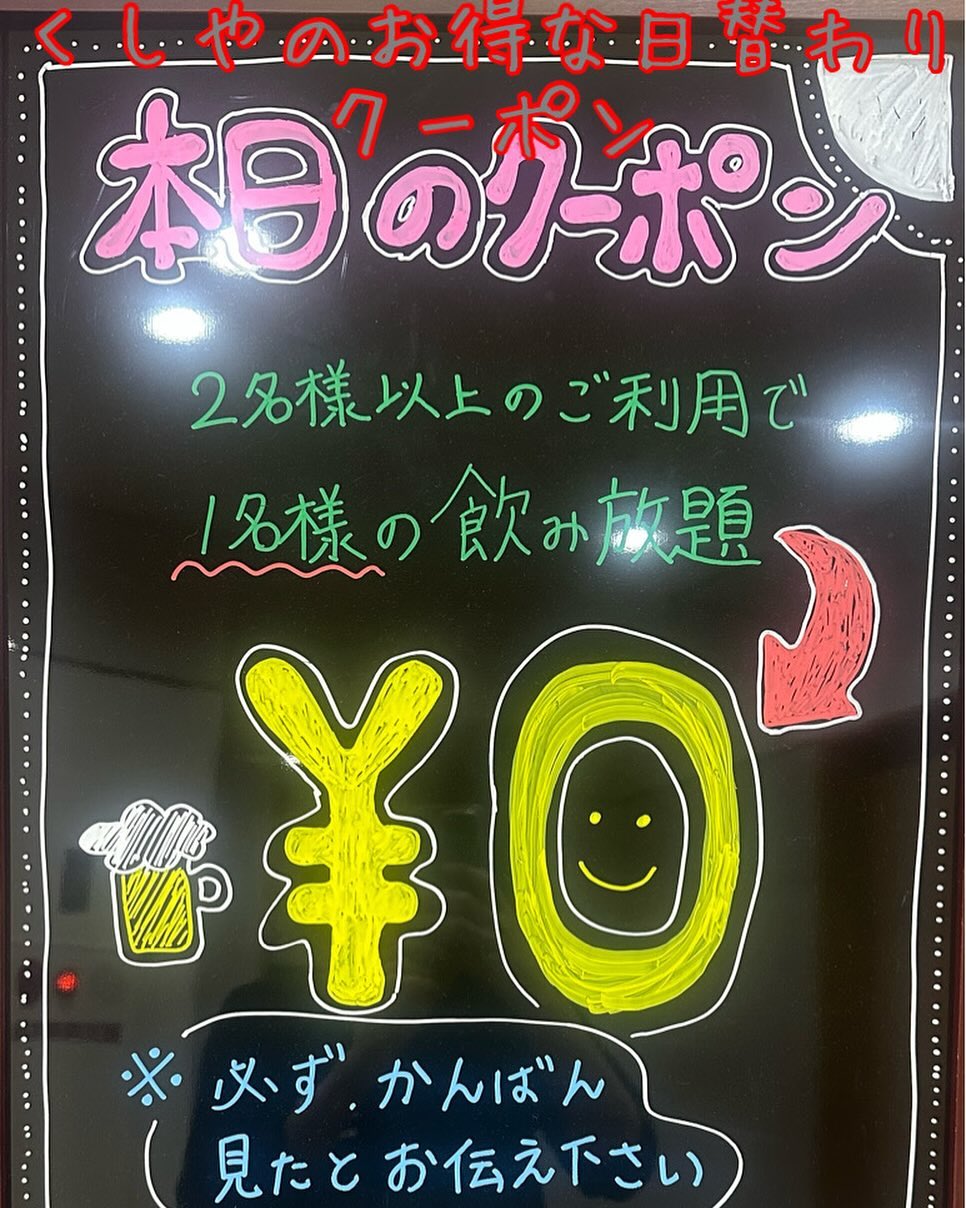 くしやのお得な日替わり
クーポン
本日のクーポン
2名様以上のご利用で
1名様の飲み放題
¥0
※必ず、かんばん
見たとお伝え下さい